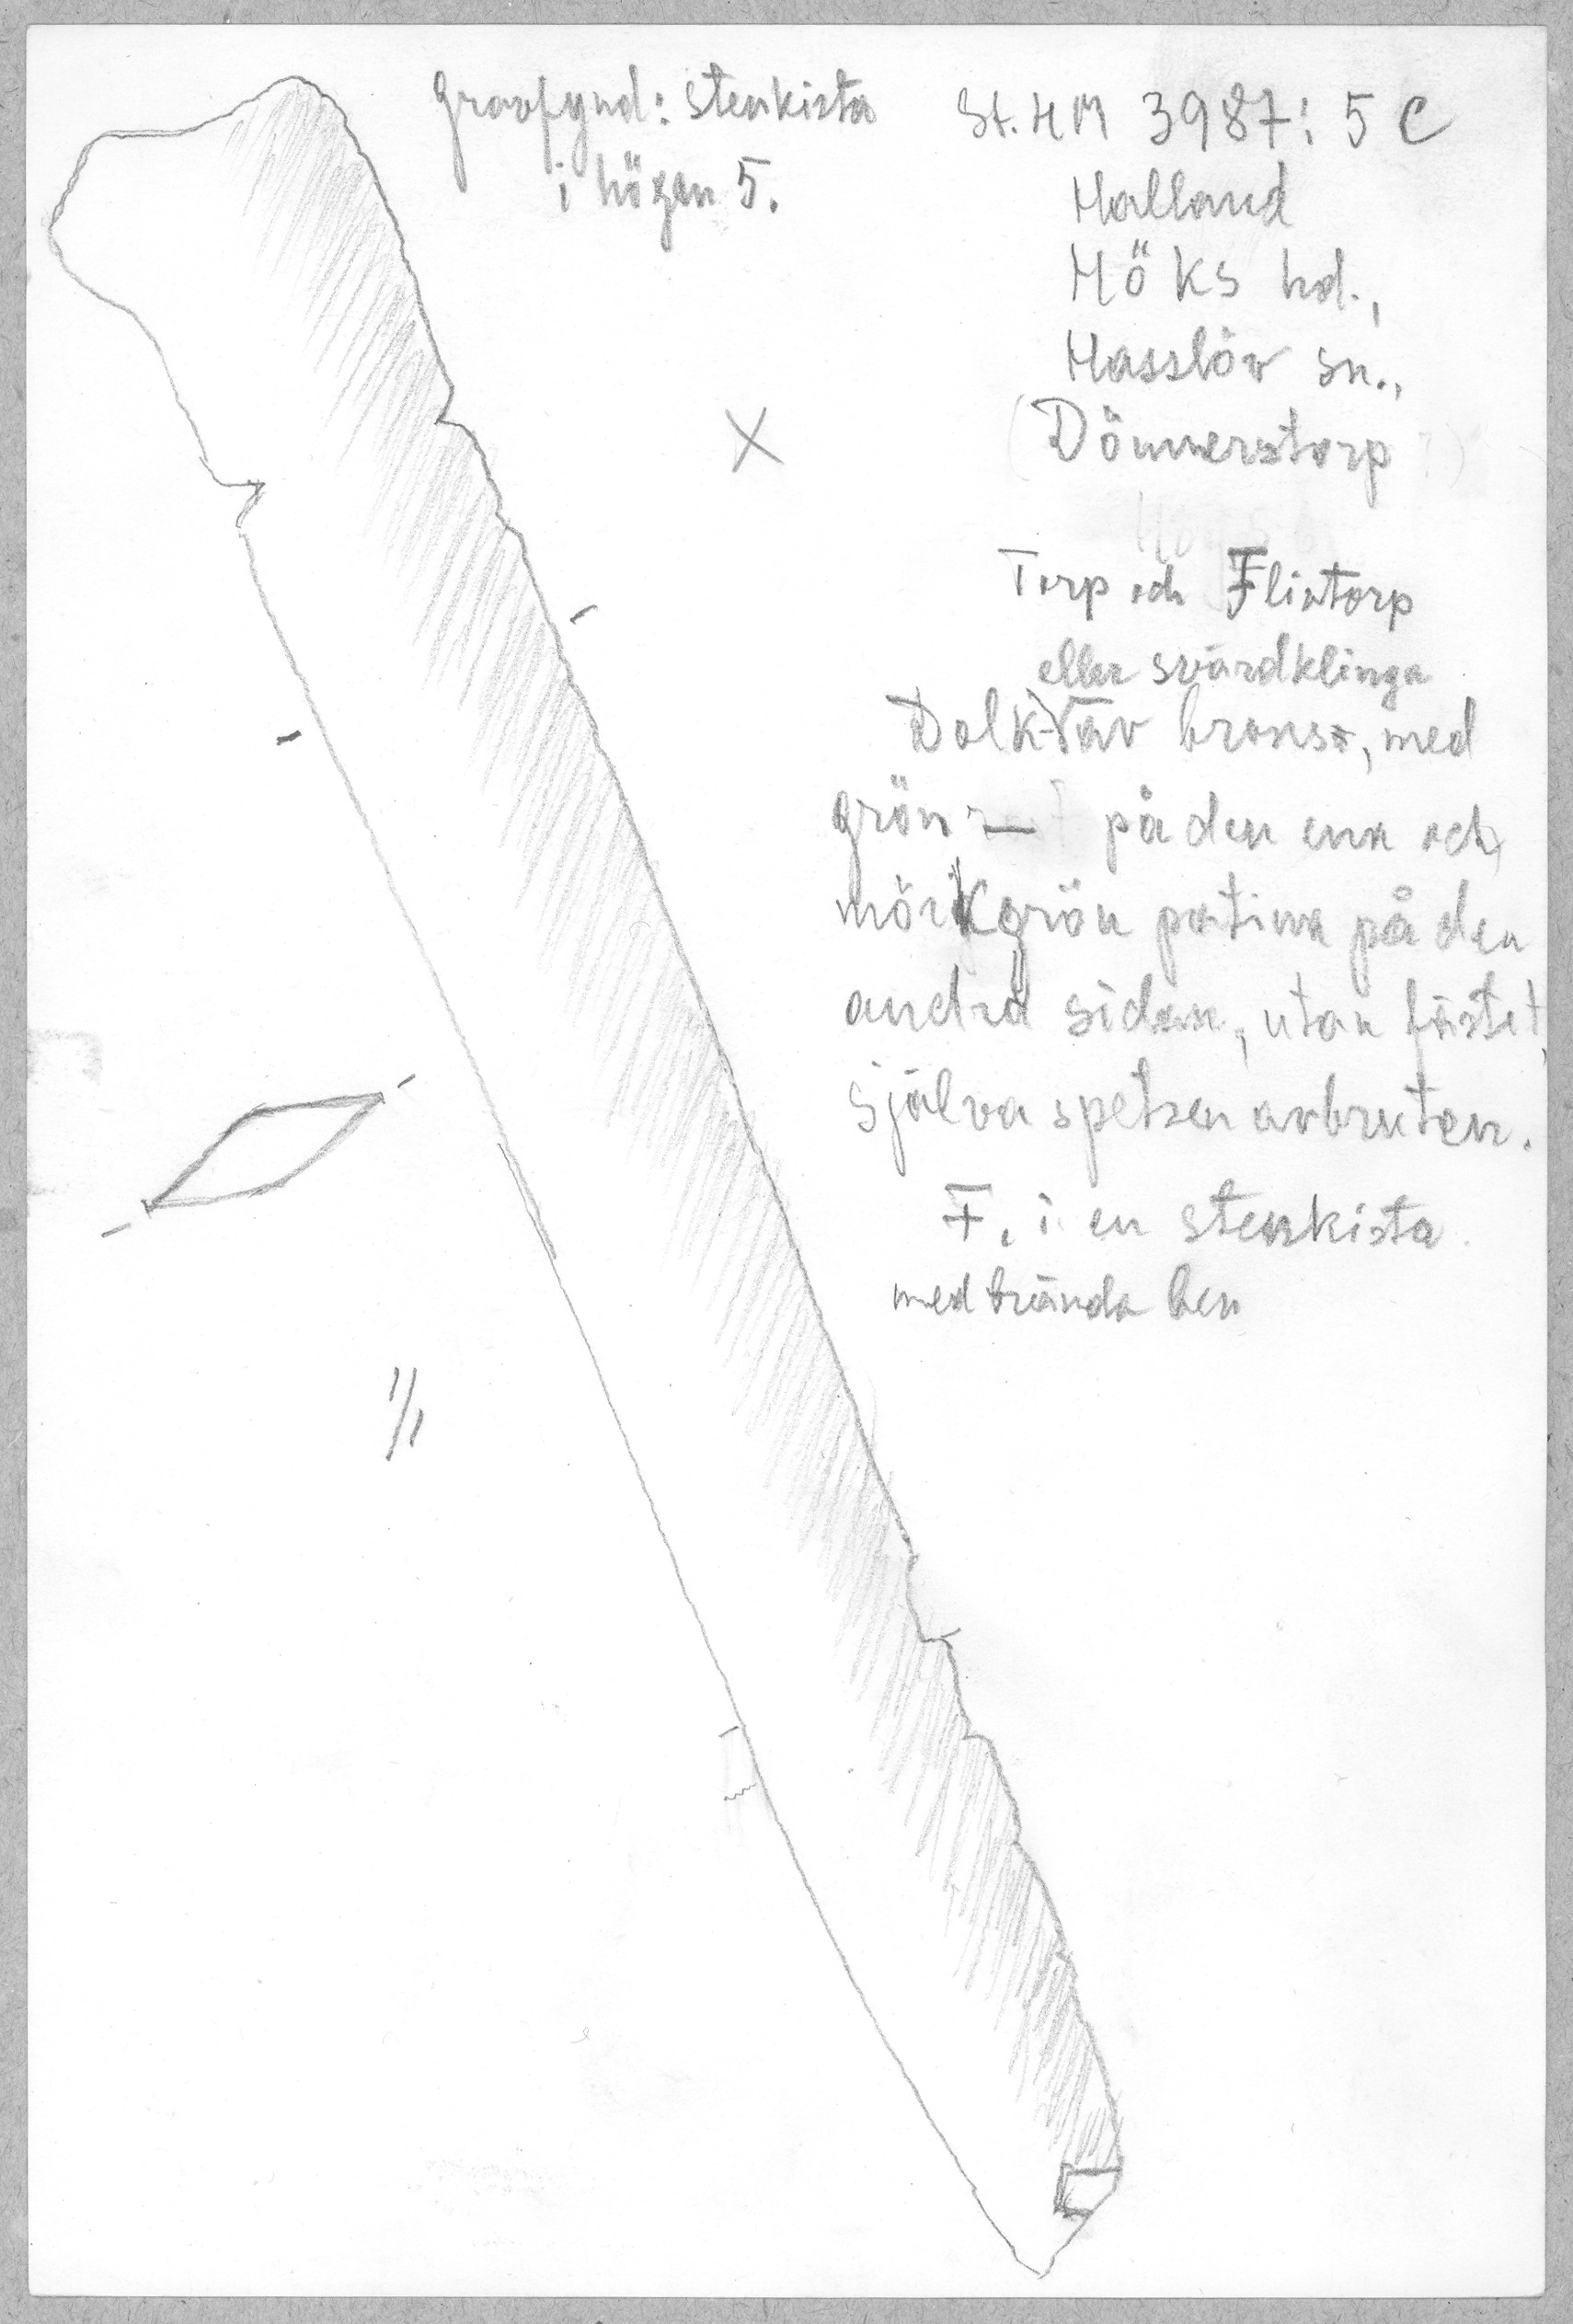 Gravfynd: stenkista
i högen 5.
St. H M 3987: 5 C
Halland
Höks hd.,
Hasslöv sn.,
(Dömmerstorp ?)
Torp och Flintorp
eller svärdklinga
Dolk av brons, med
grön — på den ena och
mörkgrön patina på den
andra sidan, utan fästet,
själva spetsen avbruten.
F. i en stenkista
med brända ben
1/1